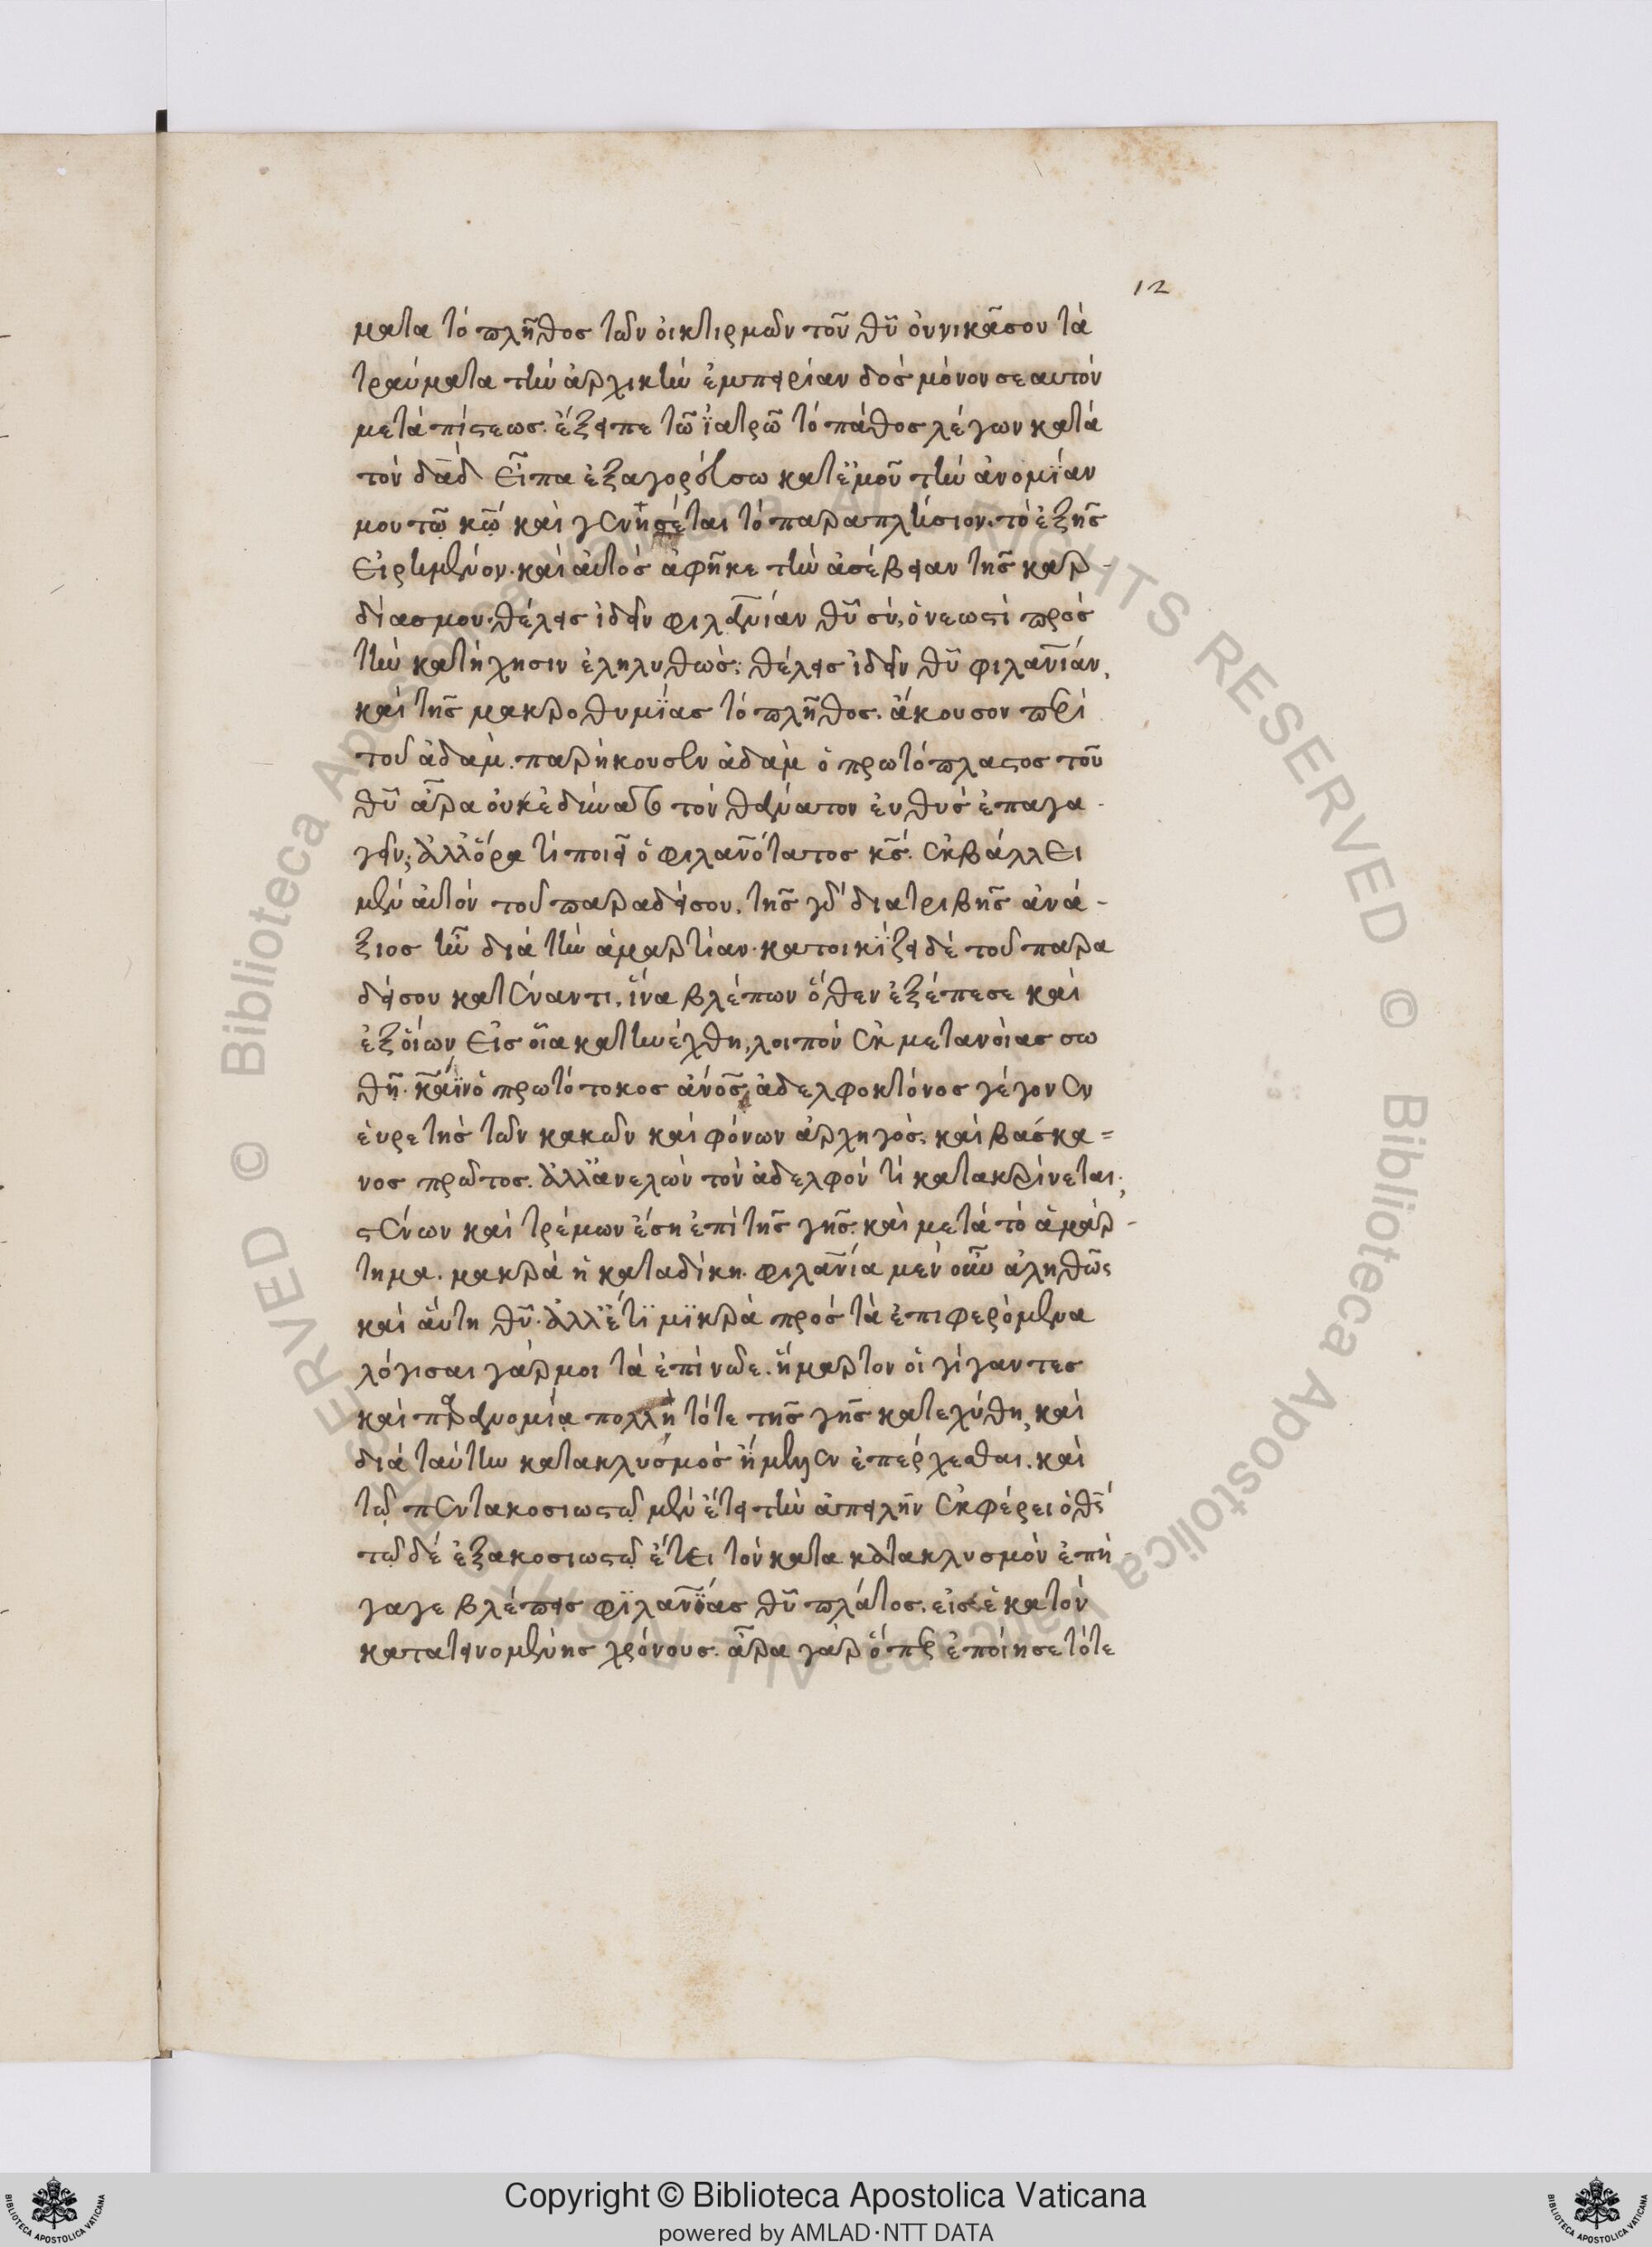 12
ματα τὸ πλῆθος τῶν οἰκτιρμῶν τοῦ θῦ οὐ νικᾶ σου τὰ
τραύματα τὴν ἀρχικὴν ἐμπειρίαν δὸς μόνον σεαυτὸν
μετὰ πίστεως. ἔξειπε τῶ ἰατρῶ τὸ πάθος λέγων κατὰ
τὸν δᾱδ εἶπα ἐξαγορεύσω κατ ἐμοῦ τὴν ἀνομίαν
μου τῷ κῷ καὶ γενήσεται τὸ παραπλήσιον. τὸ ἐξῆς
εἰρημένον. καὶ αὐτὸς ἀφῆκε τὴν ἀσέβειαν τῆς καρ-
δίας μου. θέλεις ἰδεῖν φιλανίαν θῦ σύ, ὁ νεωστὶ πρὸς
τὴν κατήχησιν ἐληλυθώς; θέλεις ἰδεῖν θῦ φιλανίαν,
καὶ τῆς μακροθυμίας τὸ πλῆθος. ἄκουσον περὶ
τοῦ ἀδὰμ. παρήκουσεν ἀδὰμ ὁ πρωτόπλαστος τοῦ
θῦ ἆρα οὐκ ἐδύνατο τὸν θάνατον εὐθὺς ἐπαγα-
γεῖν; ἀλλ ὅρα τί ποιεῖ ὁ φιλανότατος κς. ἐκβάλλει
μὲν αὐτὸν τοῦ παραδείσου. τῆς γὰρ διατριβῆς ἀνά-
ξιος ἦν διὰ τὴν ἁμαρτίαν. κατοικίζει δὲ τοῦ παρα
δείσου κατέναντι, ἵνα βλέπων ὅθεν ἐξέπεσε καὶ
ἐξ οἵων εἰς οἷα κατηνέχθη, λοιπὸν ἐκ μετανοίας σω
θῆ. κάϊν ὁ πρωτότοκος ἄνος, ἀδελφοκτόνος γέγονεν
εὑρετὴς τῶν κακῶν καὶ φόνων ἀρχηγός. καὶ βάσκα-
νος πρῶτος. ἀλλ ἀνελὼν τὸν ἀδελφὸν τί κατακρίνεται;
στένων καὶ τρέμων ἔση ἐπὶ τῆς γῆς. καὶ μετὰ τὸ ἁμάρ-
τημα. μακρὰ ἡ καταδίκη. φιλανία μὲν οὖν ἀληθῶς
καὶ αὕτη θῦ. ἀλλ ἔτι μικρὰ πρὸς τὰ ἐπιφερόμενα
λόγισαι γάρ μοι τὰ ἐπὶ νῶε. ἥμαρτον οἱ γίγαντες
καὶ παρανομία πολλὴ τότε τῆς γῆς κατεχύθη, καὶ
διὰ ταύτην κατακλυσμὸς ἤμελλεν ἐπέρχεσθαι. καὶ
τῷ πεντακοσιωστῷ μὲν ἔτει τὴν ἀπειλὴν ἐκφέρει ὁ θς
τῷ δὲ ἑξακοσιωστῷ ἔτει τὸν κατα κατακλυσμὸν ἐπή
γαγε βλέπεις φιλανίας θῦ πλάτος. εἰς ἑκατὸν
κατατεινομένης χρόνους. ἆρα γὰρ ὅπερ ἐποίησε τότε
Copyright © Biblioteca Apostolica Vaticana
powered by AMLAD·NTT DATA